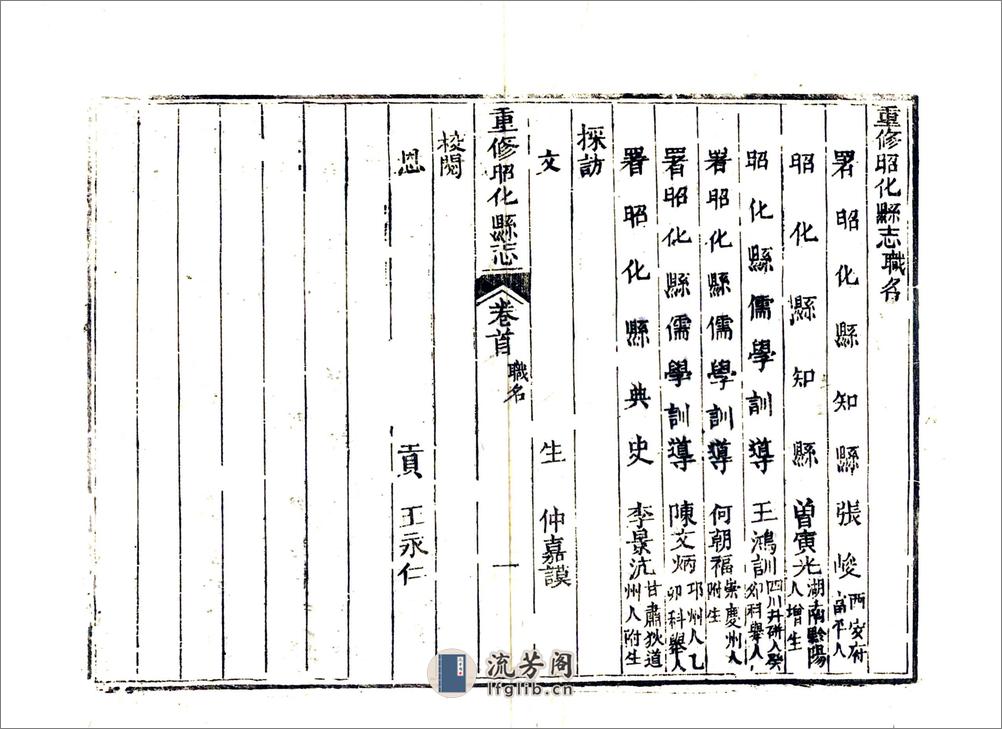 重修昭化縣志職名
署昭化縣知縣張峻西安府富平人
昭化縣知縣曾寅光湖南黔陽人增生
昭化縣儒學訓導王鴻訓四川井研人癸卯科舉人
署昭化縣儒學訓導何朝福崇慶州人附生
署昭化縣儒學訓導陳文炳邛州人乙卯科舉人
署昭化縣典史李景沆甘肅狄道州人附生
採訪
文生仲嘉謨
重修昭化縣志 卷首 職名 一
校閱
恩貢王永仁
流芳阁
lfglib.cn